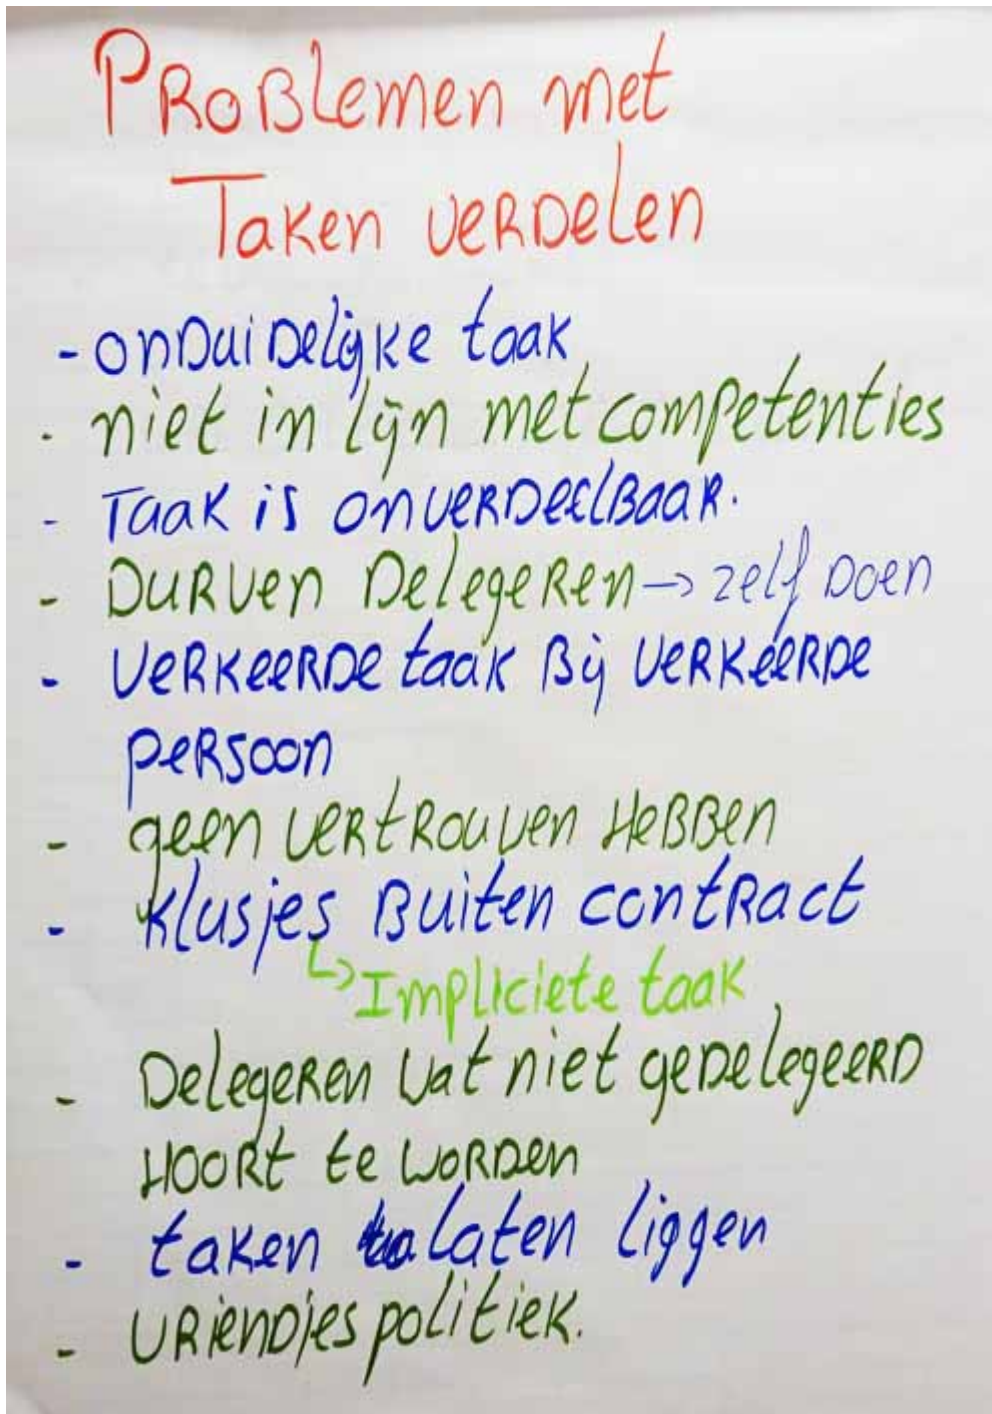 Problemen met
Taken verdelen
- onduidelijke taak
- niet in lijn met competenties
- Taak is onverdeelbaar.
- Durven Delegeren → zelf doen
- verkeerde taak bij verkeerde
persoon
- geen vertrouwen hebben
- klusjes buiten contract
↳ Impliciete taak
- Delegeren wat niet gedelegeerd
hoort te worden
- taken laten liggen
- vriendjespolitiek.